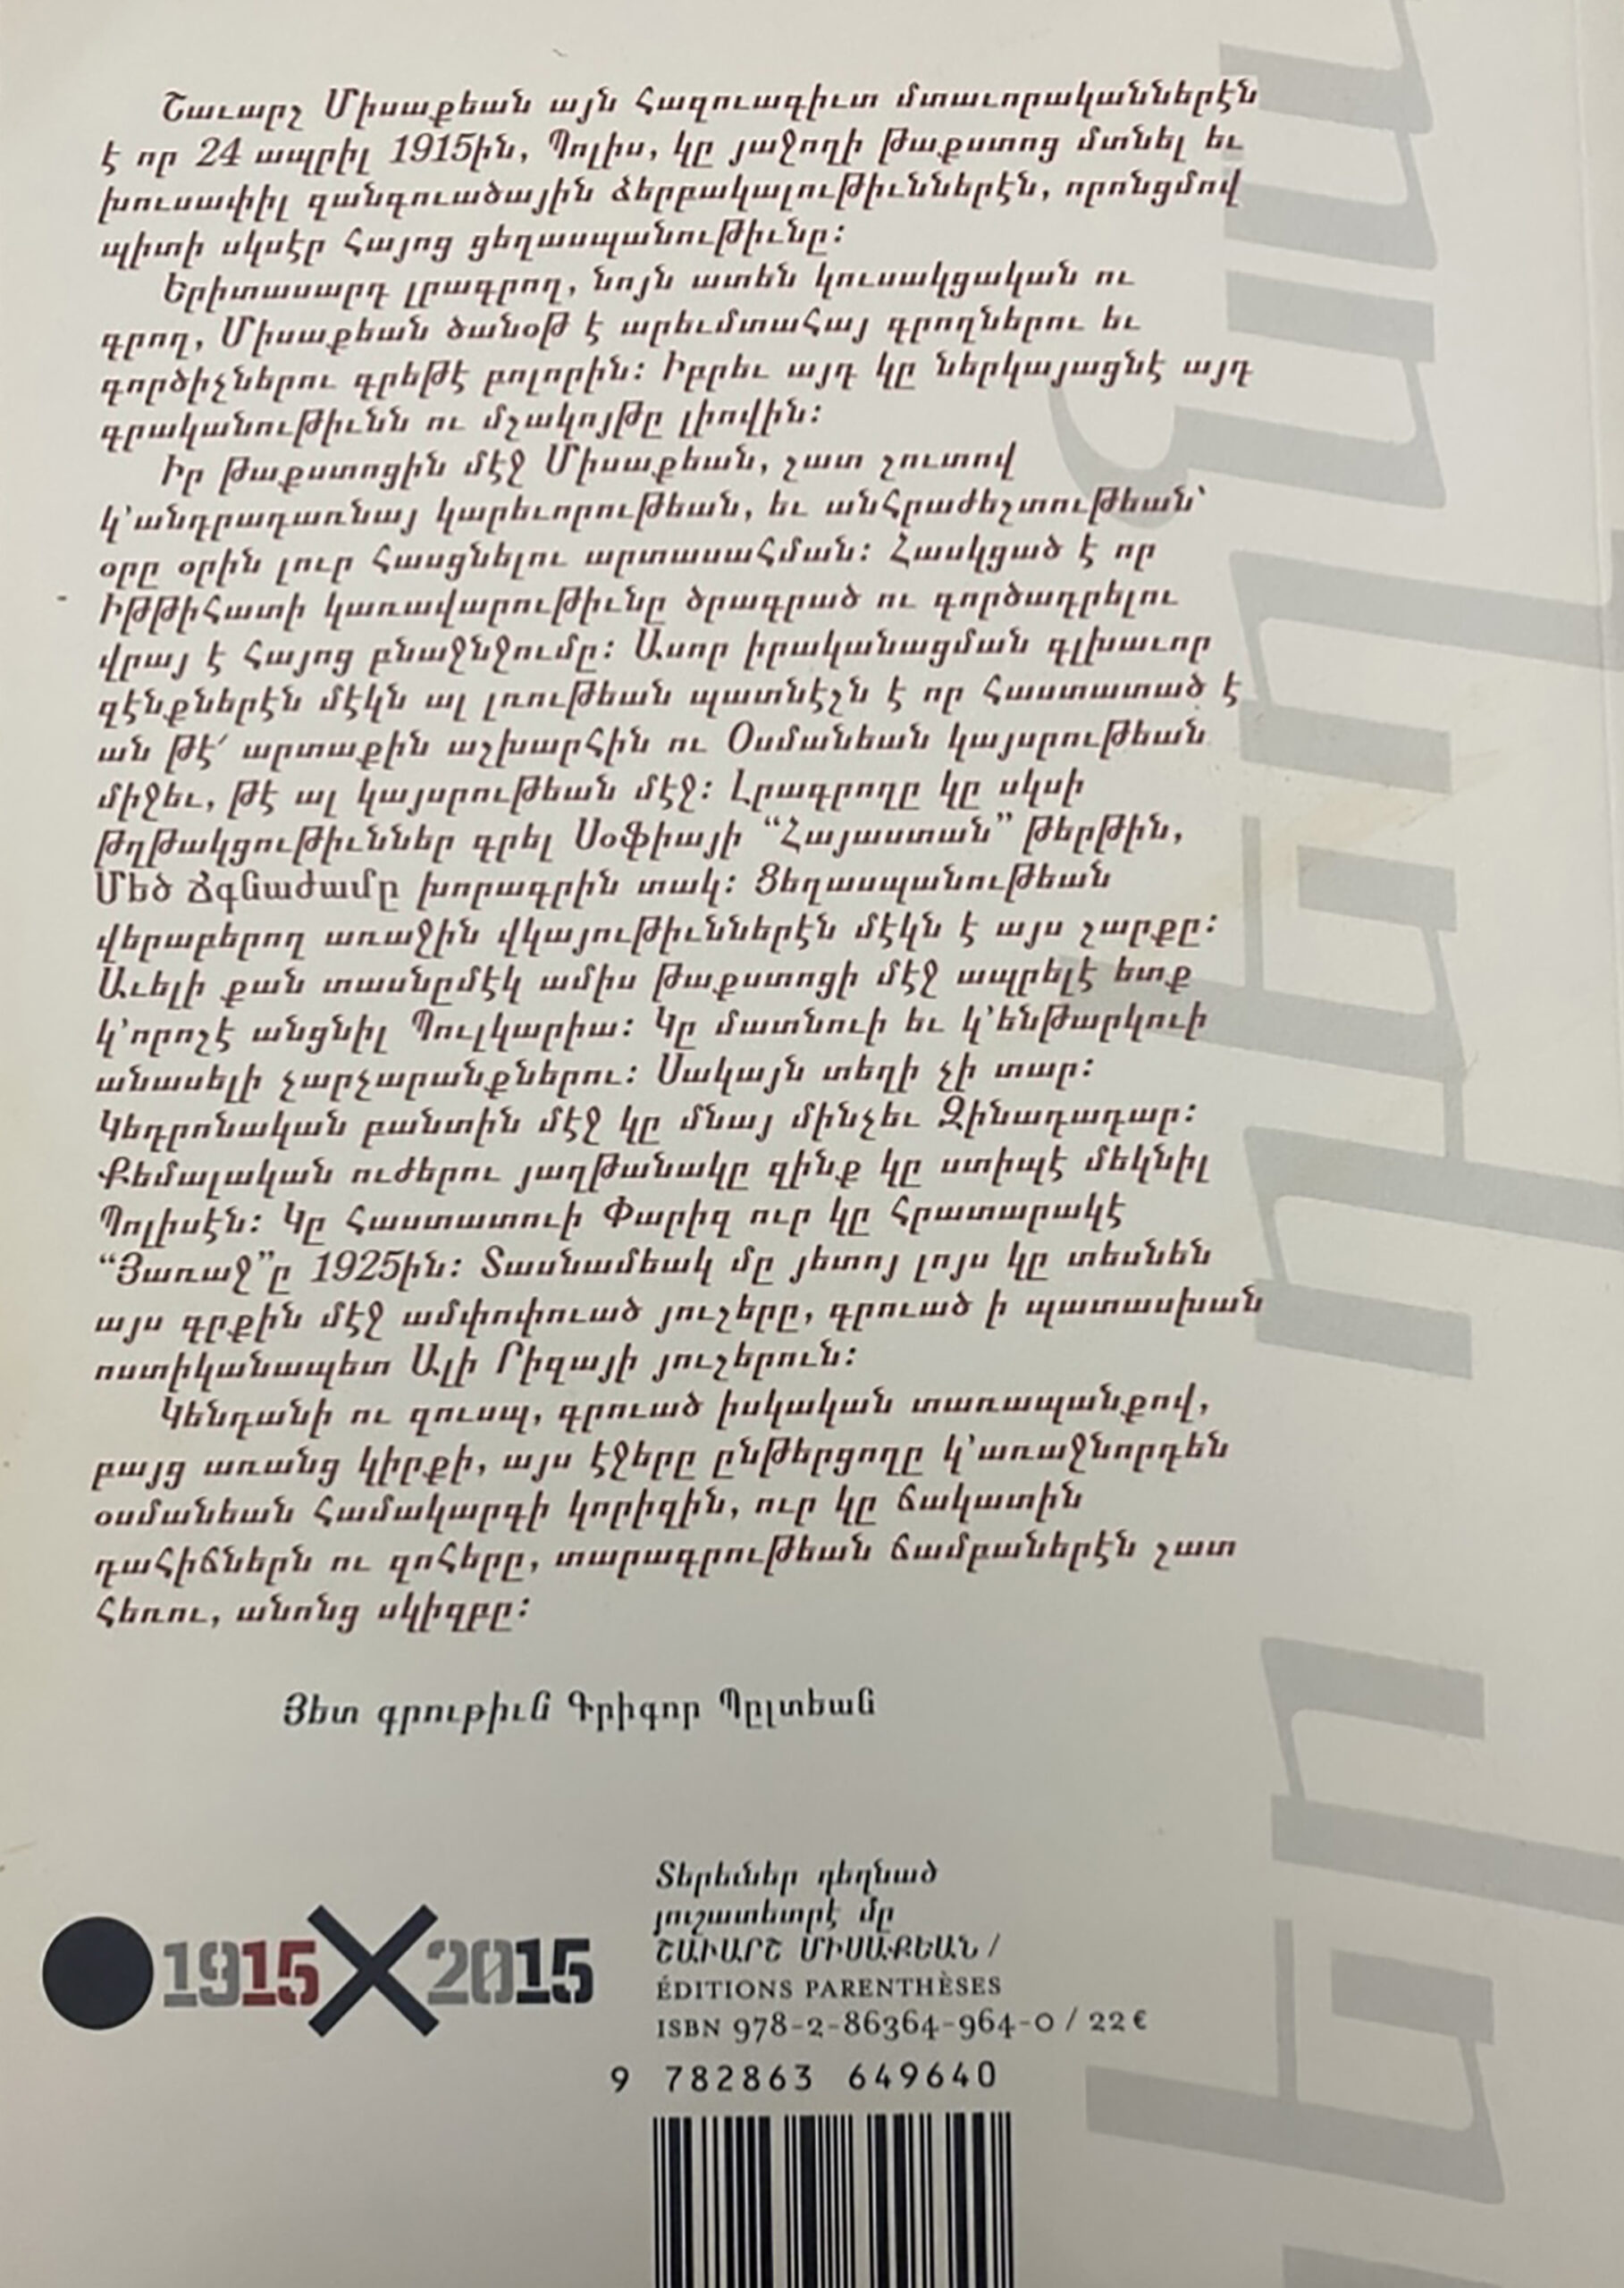 Շաւարշ Միսաքեան այն հազուագիւտ մտաւորականներէն
է որ 24 ապրիլ 1915ին, Պոլիս, կը յաջողի թաքստոց մտնել եւ
խուսափիլ զանգուածային ձերբակալութիւններէն, որոնցմով
պիտի սկսէր հայոց ցեղասպանութիւնը։
Երիտասարդ լրագրող, նոյն ատեն կուսակցական ու
գրող, Միսաքեան ծանօթ է արեւմտահայ գրողներու եւ
գործիչներու գրեթէ բոլորին։ Իբրեւ այդ կը ներկայացնէ այդ
գրականութիւնն ու մշակոյթը լիովին։
Իր թաքստոցին մէջ Միսաքեան, շատ շուտով
կ՚անդրադառնայ կարեւորութեան, եւ անհրաժեշտութեան՝
օրը օրին լուր հասցնելու արտասահման։ Հասկցած է որ
Իթթիհատի կառավարութիւնը ծրագրած ու գործադրելու
վրայ է հայոց բնաջնջումը։ Ասոր իրականացման գլխաւոր
զէնքներէն մէկն ալ լռութեան պատնէշն է որ հաստատած է
ան թէ՛ արտաքին աշխարհին ու Օսմանեան կայսրութեան
միջեւ, թէ ալ կայսրութեան մէջ։ Լրագրողը կը սկսի
թղթակցութիւններ գրել Սօֆիայի “Հայաստան” թերթին,
Մեծ Ճգնաժամը խորագրին տակ։ Ցեղասպանութեան
վերաբերող առաջին վկայութիւններէն մէկն է այս շարքը։
Աւելի քան տասնըմէկ ամիս թաքստոցի մէջ ապրելէ ետք
կ՚որոշէ անցնիլ Պուլկարիա։ Կը մատնուի եւ կ՚ենթարկուի
անասելի չարչարանքներու։ Սակայն տեղի չի տար։
Կեդրոնական բանտին մէջ կը մնայ մինչեւ Զինադադար։
Քեմալական ուժերու յաղթանակը զինք կը ստիպէ մեկնիլ
Պոլիսէն։ Կը հաստատուի Փարիզ ուր կը հրատարակէ
“Յառաջ”ը 1925ին։ Տասնամեակ մը յետոյ լոյս կը տեսնեն
այս գրքին մէջ ամփոփուած յուշերը, գրուած ի պատասխան
ոստիկանապետ Ալի Րիզայի յուշերուն։
Կենդանի ու զուսպ, գրուած իսկական տառապանքով,
բայց առանց կիրքի, այս էջերը ընթերցողը կ՚առաջնորդեն
օսմանեան համակարգի կորիզին, ուր կը ճակատին
դահիճներն ու զոհերը, տարագրութեան ճամբաներէն շատ
հեռու, անոնց սկիզբը։
Յետ գրութիւն Գրիգոր Պըլտեան
Տերեւներ դեղնած
յուշատետրէ մը
ՇԱՒԱՐՇ ՄԻՍԱՔԵԱՆ /
ÉDITIONS PARENTHÈSES
ISBN 978-2-86364-964-0 / 22 €
1915 X 2015
9 782863 649640